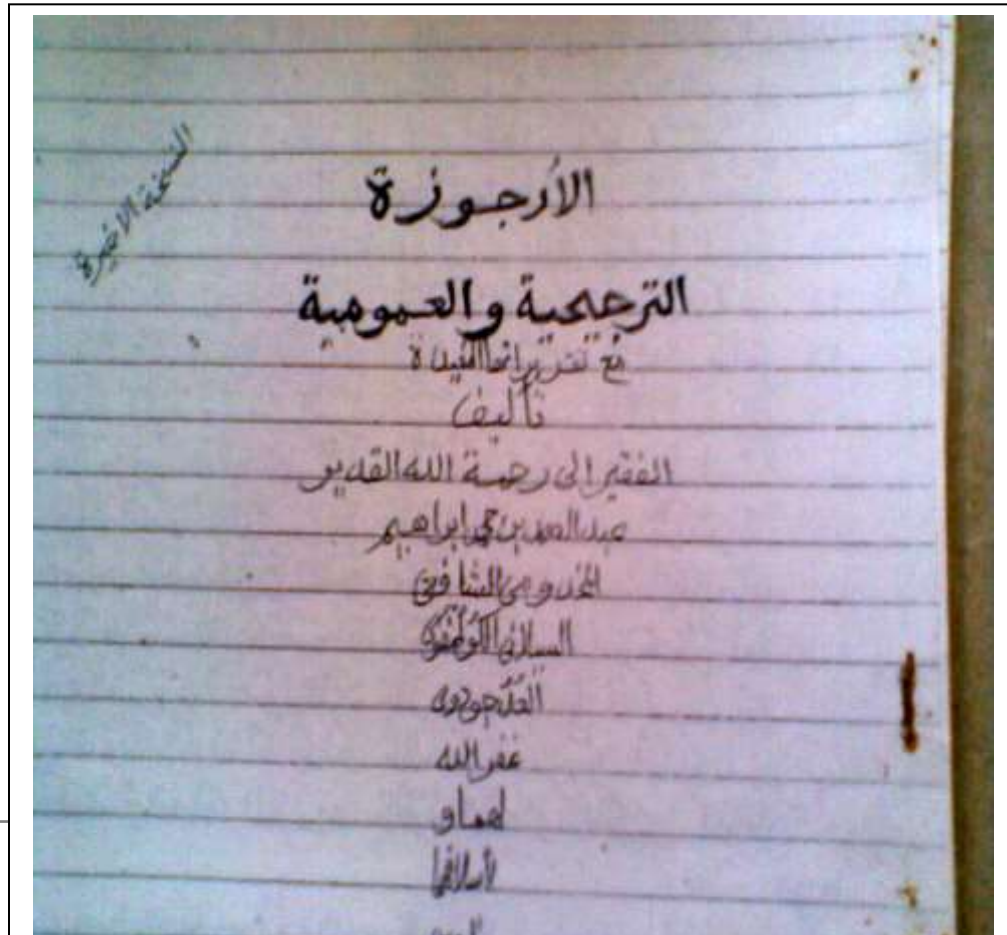 النسخة الاخيرة
الأرجوزة
الترجيحية والعمومية
مع تقريراتها المفيدة
تأليف
الفقير الى رحمة الله القدير
عبد الصمد بن محمد ابراهيم
المخدومي الشافعي
غفر الله
لهما و
لأسلافهما